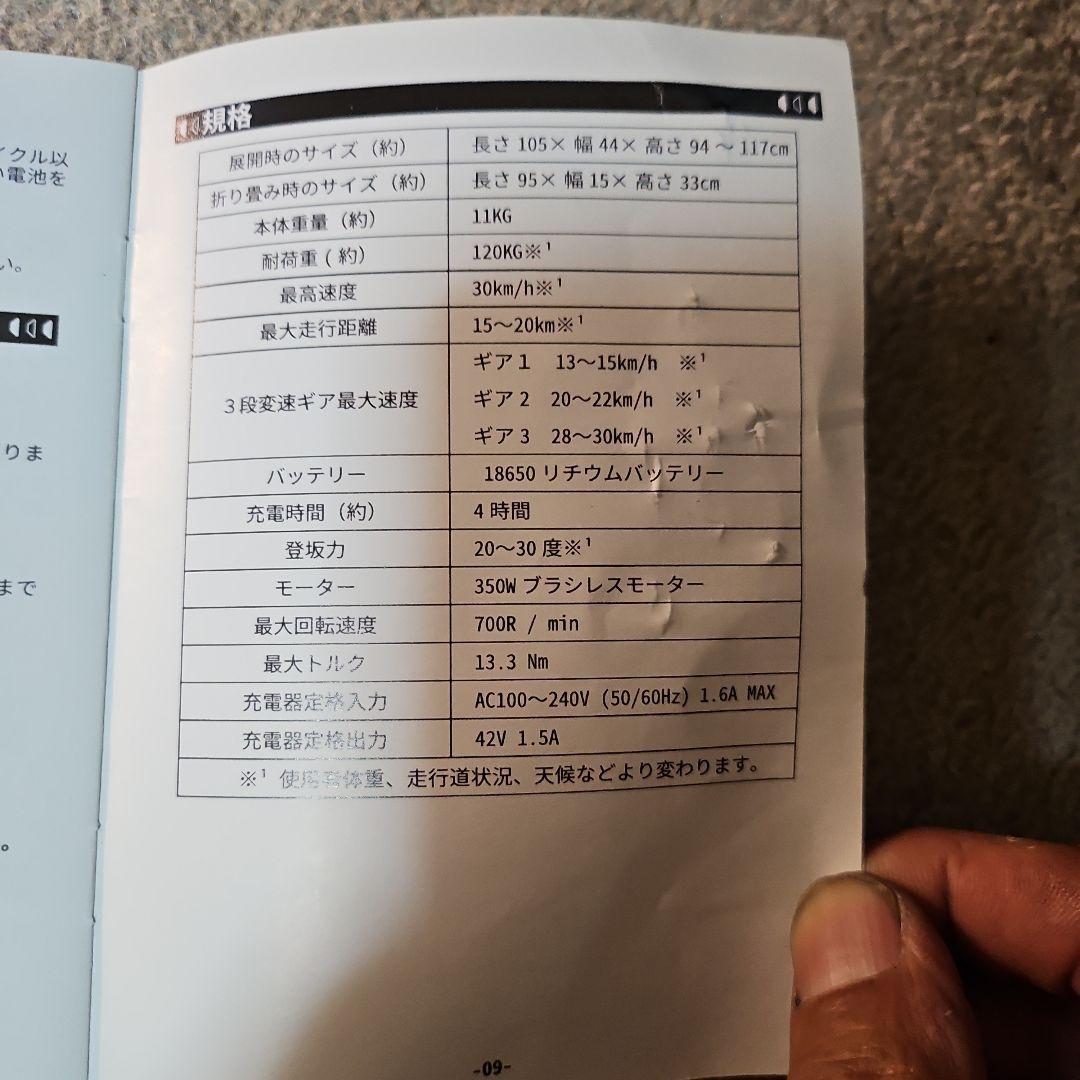 イクル以
い電池を
い。
りま
まで
。
規格
展開時のサイズ（約） 長さ105×幅44×高さ94～117cm
折り畳み時のサイズ（約） 長さ95×幅15×高さ33cm
本体重量（約） 11KG
耐荷重(約） 120KG※¹
最高速度 30km/h※¹
最大走行距離 15～20km※¹
3段変速ギア最大速度
ギア1 13～15km/h ※¹
ギア2 20～22km/h ※¹
ギア3 28～30km/h ※¹
バッテリー 18650リチウムバッテリー
充電時間（約） 4時間
登坂力 20～30度※¹
モーター 350Wブラシレスモーター
最大回転速度 700R / min
最大トルク 13.3 Nm
充電器定格入力 AC100～240V (50/60Hz) 1.6A MAX
充電器定格出力 42V 1.5A
※¹ 使用者体重、走行道状況、天候などより変わります。
-09-